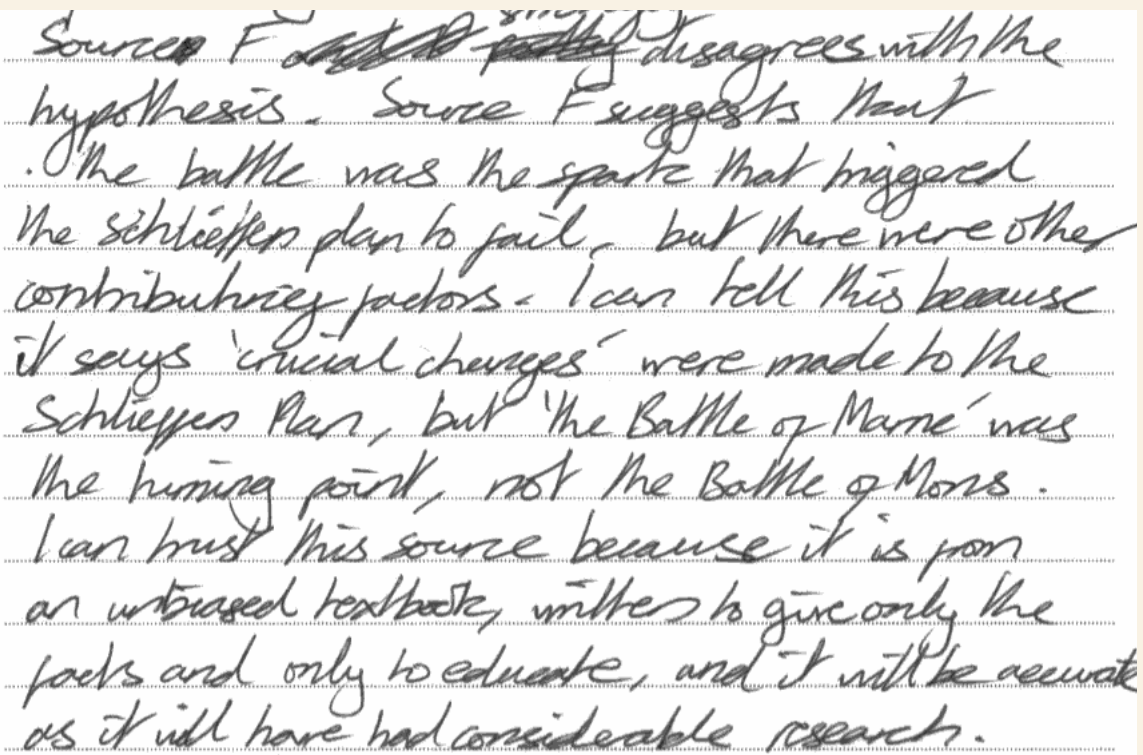 Source F disagrees with the
hypothesis. Source F suggests that
. the battle was the spark that triggered
the Schlieffen plan to fail, but there were other
contributing factors. I can tell this because
it says 'crucial changes' were made to the
Schlieffen Plan, but 'the Battle of Marne' was
the turning point, not the Battle of Mons.
I can trust this source because it is from
an unbiased textbook, written to give only the
facts and only to educate, and it will be accurate
as it will have had considerable research.